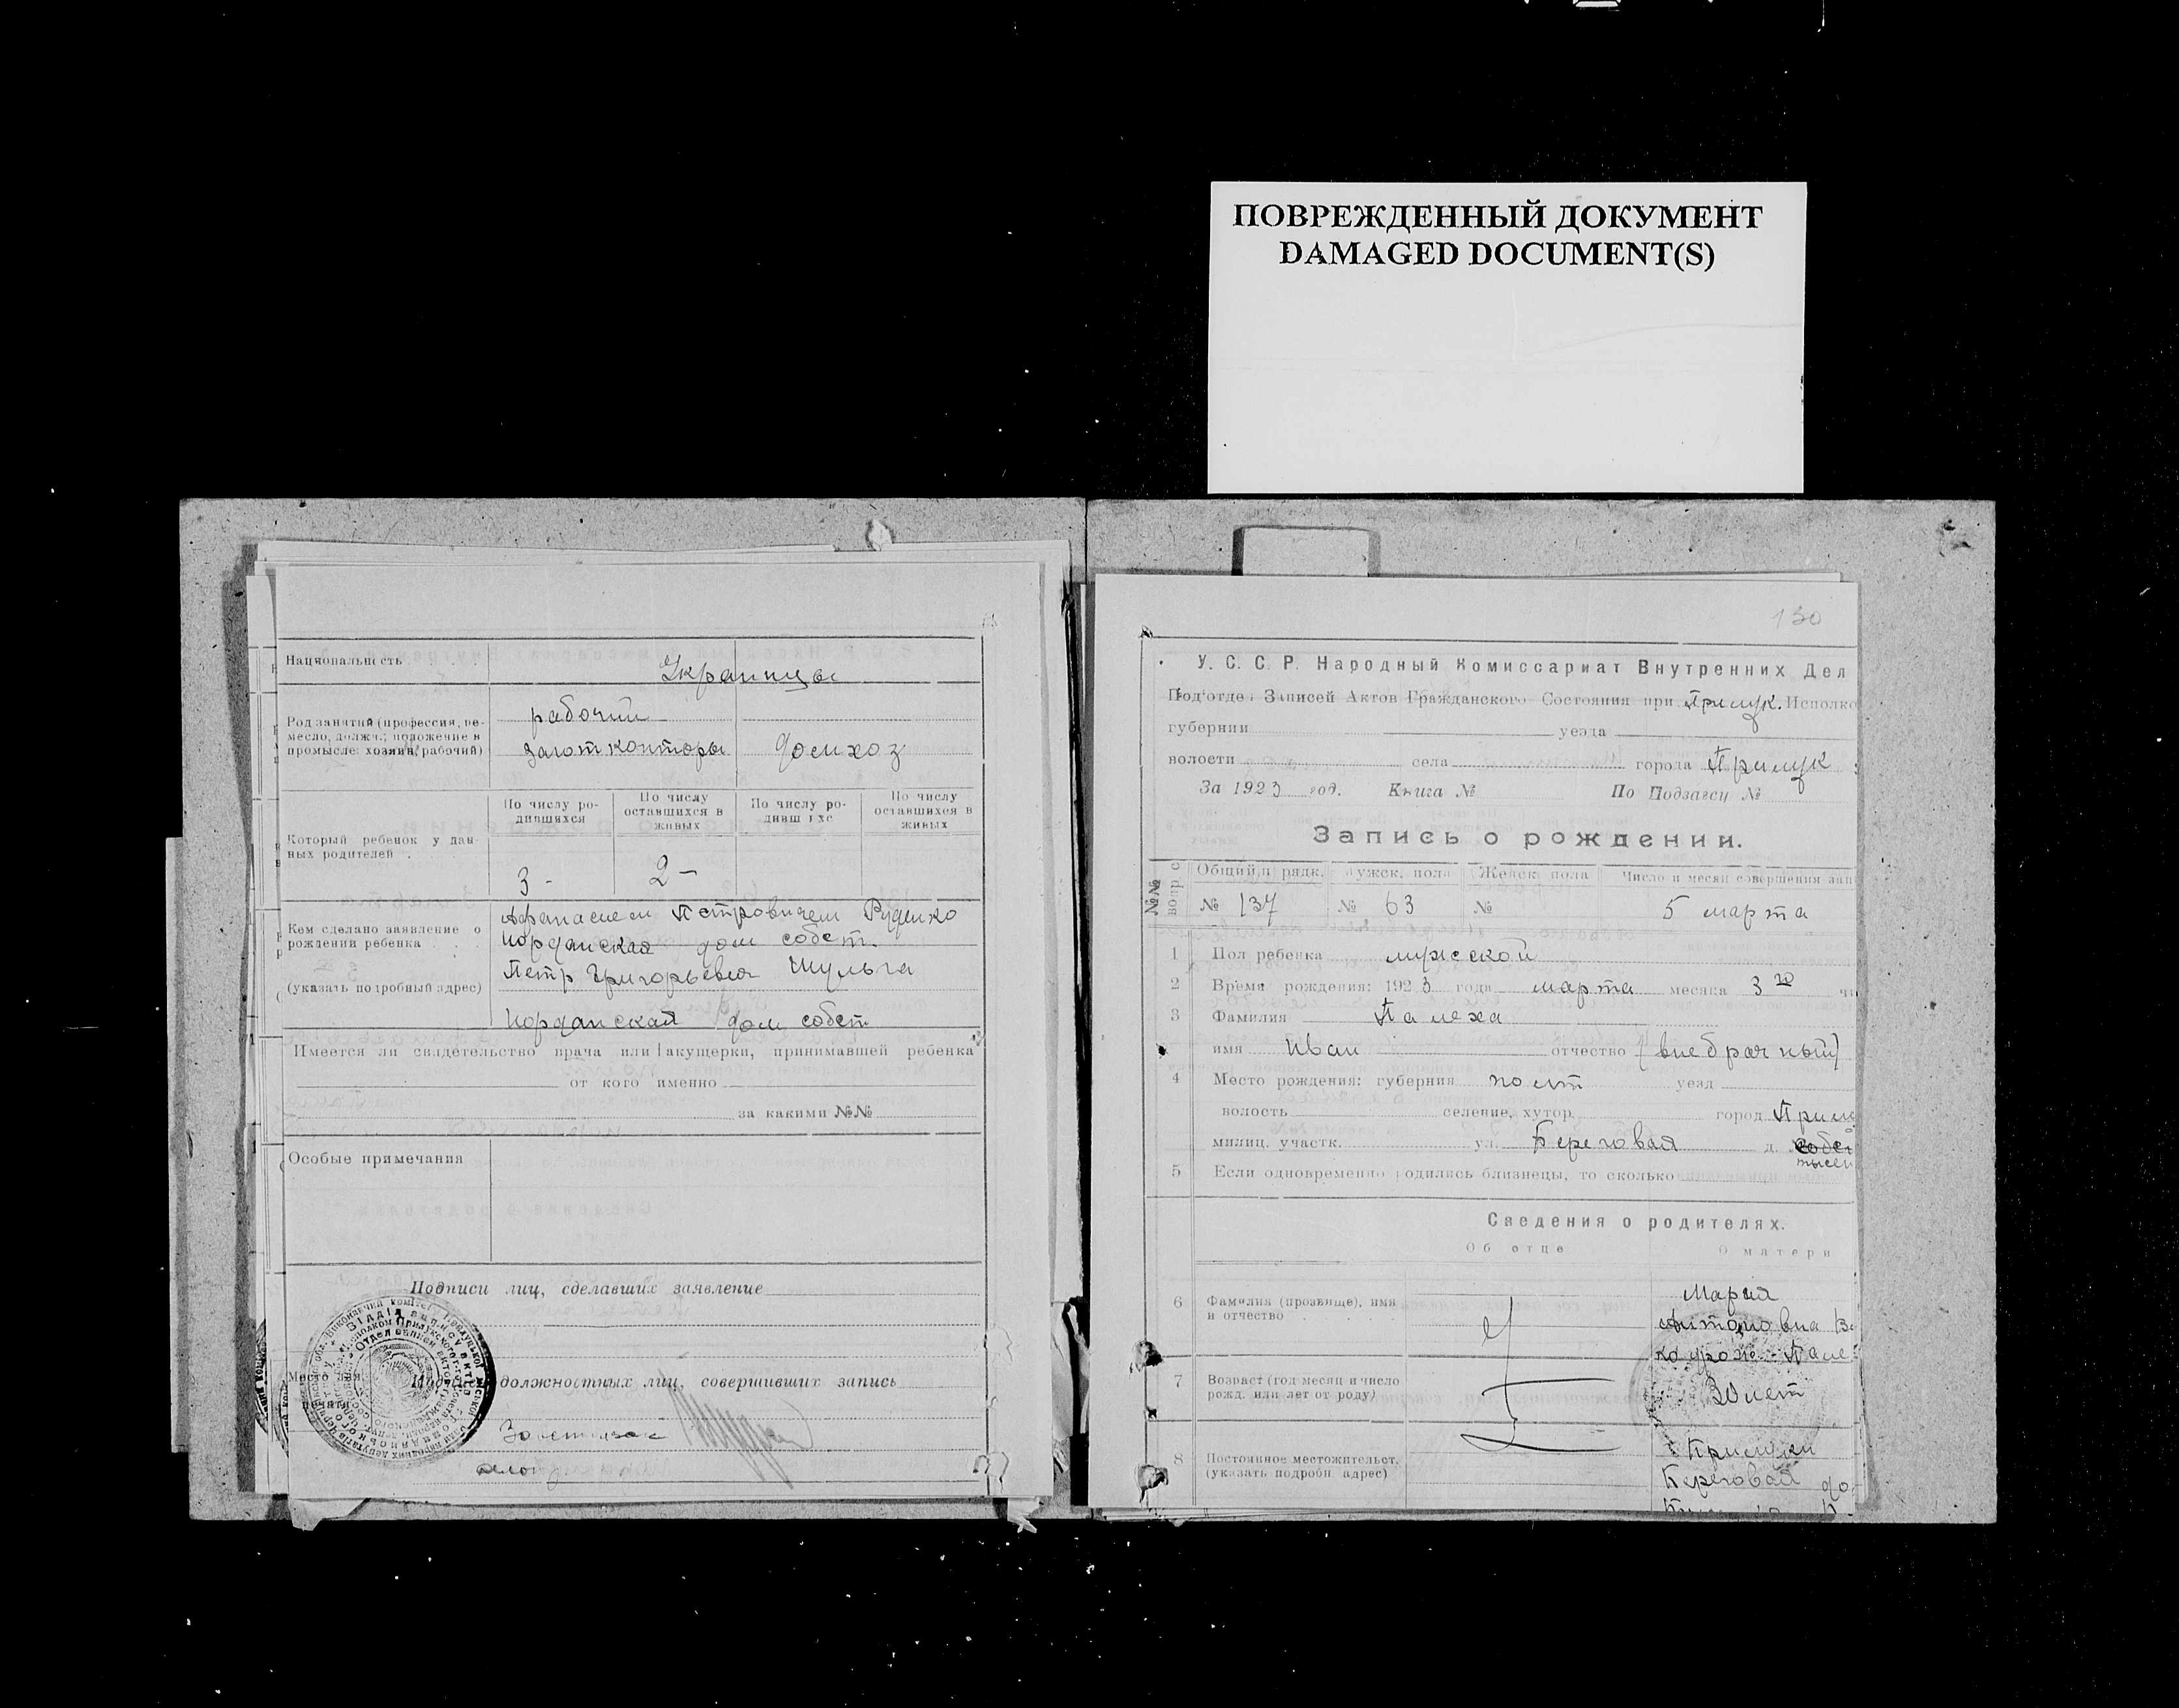 ПОВРЕЖДЕННЫЙ ДОКУМЕНТ
DAMAGED DOCUMENT(S)
Национальность Украинцы
Род занятий (профессия, ре-
месло, должн.; положение в
промысле: хозяин, рабочий)
рабочий
заготконторы домхоз
По числу ро-
дившихся
По числу
оставшихся в
живых
По числу ро-
дивш хс
По числу
оставшихся в
живых
Который ребенок у дан-
ных родителей
3 - 2 -
Кем сделано заявление о
рождении ребенка
(указать подробный адрес)
Афанасием Петровичем Руденко
Иорданская дом собст.
Петр Григорьевич Шульга
Иорданская дом собст
Имеется ли свидетельство врача или акушерки, принимавшей ребенка
от кого именно
за какими №№
Особые примечания
Подписи лиц, сделавших заявление
должностных лиц, совершивших запись
130
У. С. С. Р. Народный Комиссариат Внутренних Дел
Подотде Записей Актов Гражданского Состояния при Прилук. Исполко
губернии уезда
волости села города Прилук
За 1923 год. Книга № По Подзагсу №
Запись о рождении.
№№
Общий п рядк. ужск. пола Женск. пола Число и месяц совершения зап
№ 137 № 63 № 5 марта
1 Пол ребенка мужской
2 Время рождения: 1923 года марта месяца 3 го чи
3 Фамилия Палеха
имя Иван отчество (внебрачный)
4 Место рождения: губерния полт уезд
волость селение, хутор, город Прилу
милиц. участк. ул. Береговая д.
5 Если одновременно одились близнецы, то сколько
Сведения о родителях.
Об отце О матери
6 Фамилия (прозвище), имя
и отчество
Мария
Антоновна
7 Возраст (год месяц и число
рожд. или лет от роду)
лет
8 Постоянное местожительст.
(указать подробн. адрес)
Прилуки
Береговая до